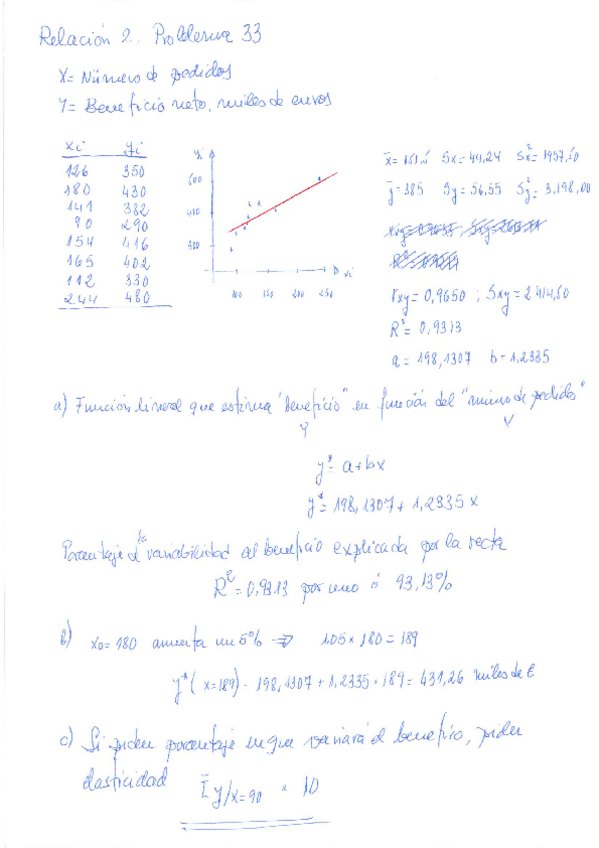 Relación 2. Problema 33
X= Número de pedidos
Y= Beneficio neto, miles de euros
xi yi
126 350
180 430
141 382
90 290
154 416
165 402
112 330
244 480
yi
500
400
300
100 150 200 250 xi
x̄= 151,5 Sx= 44,24 Sx²= 1957,50
ȳ=385 Sy= 56,55 Sy²= 3.198,00
rxy= 0,9650 ; Sxy= 2414,50
R²= 0,9313
a= 198,1307 b=1,2335
a) Función lineal que estima "beneficio" en función del "número de pedidos"
Y X
y*= a+bx
y*= 198,1307 + 1,2335 x
Porcentaje de la variabilidad del beneficio explicada por la recta
R²= 0,9313 por uno ó 93,13%
b) x0= 180 aumenta un 5% ⇒ 1.05 × 180 = 189
y*( x=189) = 198,1307 + 1,2335 · 189 = 431,26 miles de €
c) Si piden porcentaje en que variará el beneficio, piden
elasticidad E y/x=90 × 10